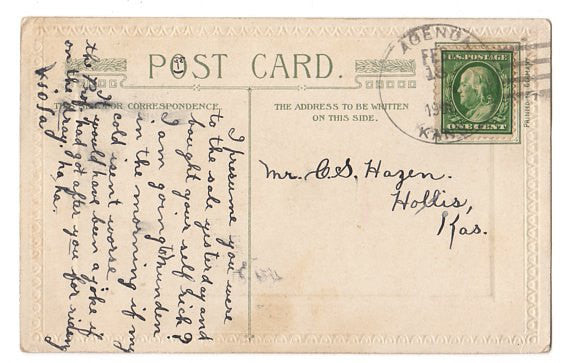 POST CARD.
THE SPACE FOR CORRESPONDENCE
THE ADDRESS TO BE WRITTEN
ON THIS SIDE.
AGENDA
FEB
19
KANS
U.S. POSTAGE
ONE CENT
PRINTED IN GERMANY
Mr. C. S. Hazen.
Hollis,
Kas.
I presume you were
to the sale yesterday and
bought your self rich?
I am going to Munden
in the morning if my
cold isent worse
would have been a joke if
the Prof. had got after you for riding
on the dray. ha ha.